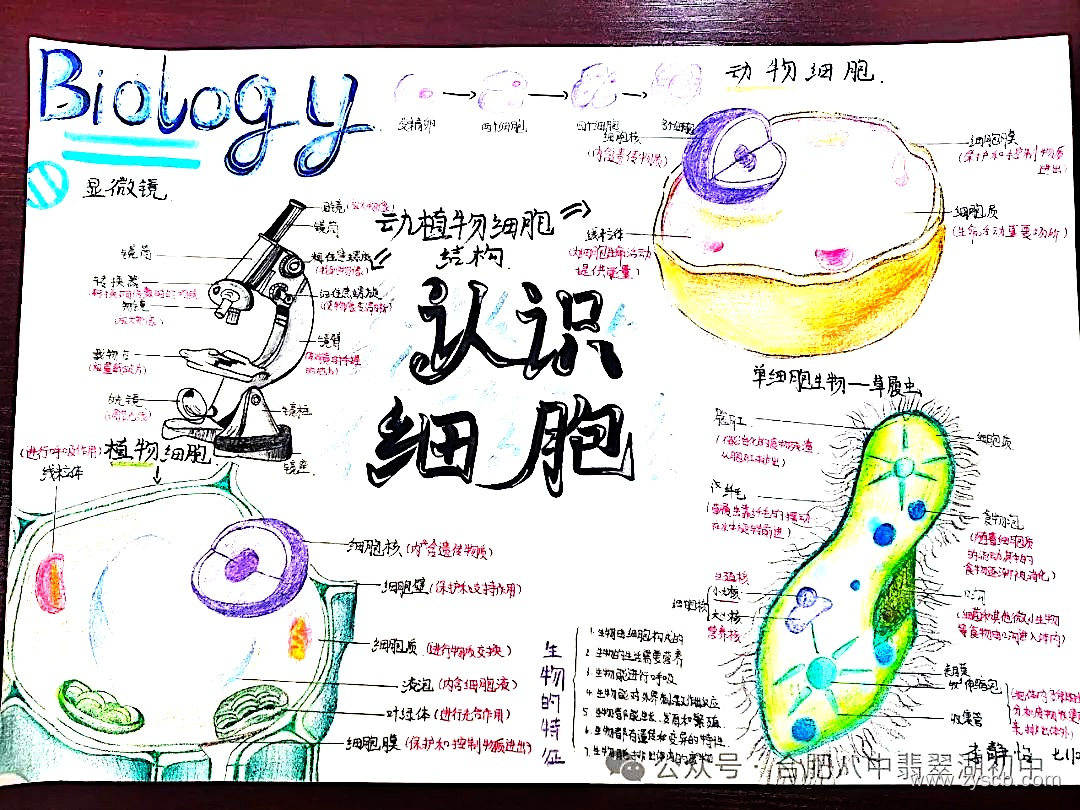 Biology
受精卵
两个细胞
四个细胞
动物细胞
细胞核
(内含遗传物质)
细胞膜
(保护和控制物质
进出)
细胞质
(生命活动重要场所)
线粒体
(为细胞生命活动
提供能量)
显微镜
目镜
镜筒
镜筒
转换器
物镜
载物台
反光镜
镜臂
镜柱
镜座
动植物细胞
结构
认识
细胞
(进行呼吸作用)
植物细胞
线粒体
细胞核 (内含遗传物质)
细胞壁 (保护和支持作用)
细胞质 (进行物质交换)
液泡 (内含细胞液)
叶绿体 (进行光合作用)
细胞膜 (保护和控制物质进出)
生物的特征
1. 生物由细胞构成的
2. 生物的生活需要营养
3. 生物能进行呼吸
4. 生物能对外界刺激作出反应
5. 生物都能生长、发育和繁殖
6. 生物都有遗传和变异的特性
7. 生物能排出体内的废物
单细胞生物—草履虫
胞肛
细胞质
纤毛
食物泡
(随着细胞质
的流动其中的
食物逐渐被消化)
口沟
细胞核
小核
大核
营养核
表膜
收集管
公众号·合肥八中翡翠湖初中
www.zyscb.com